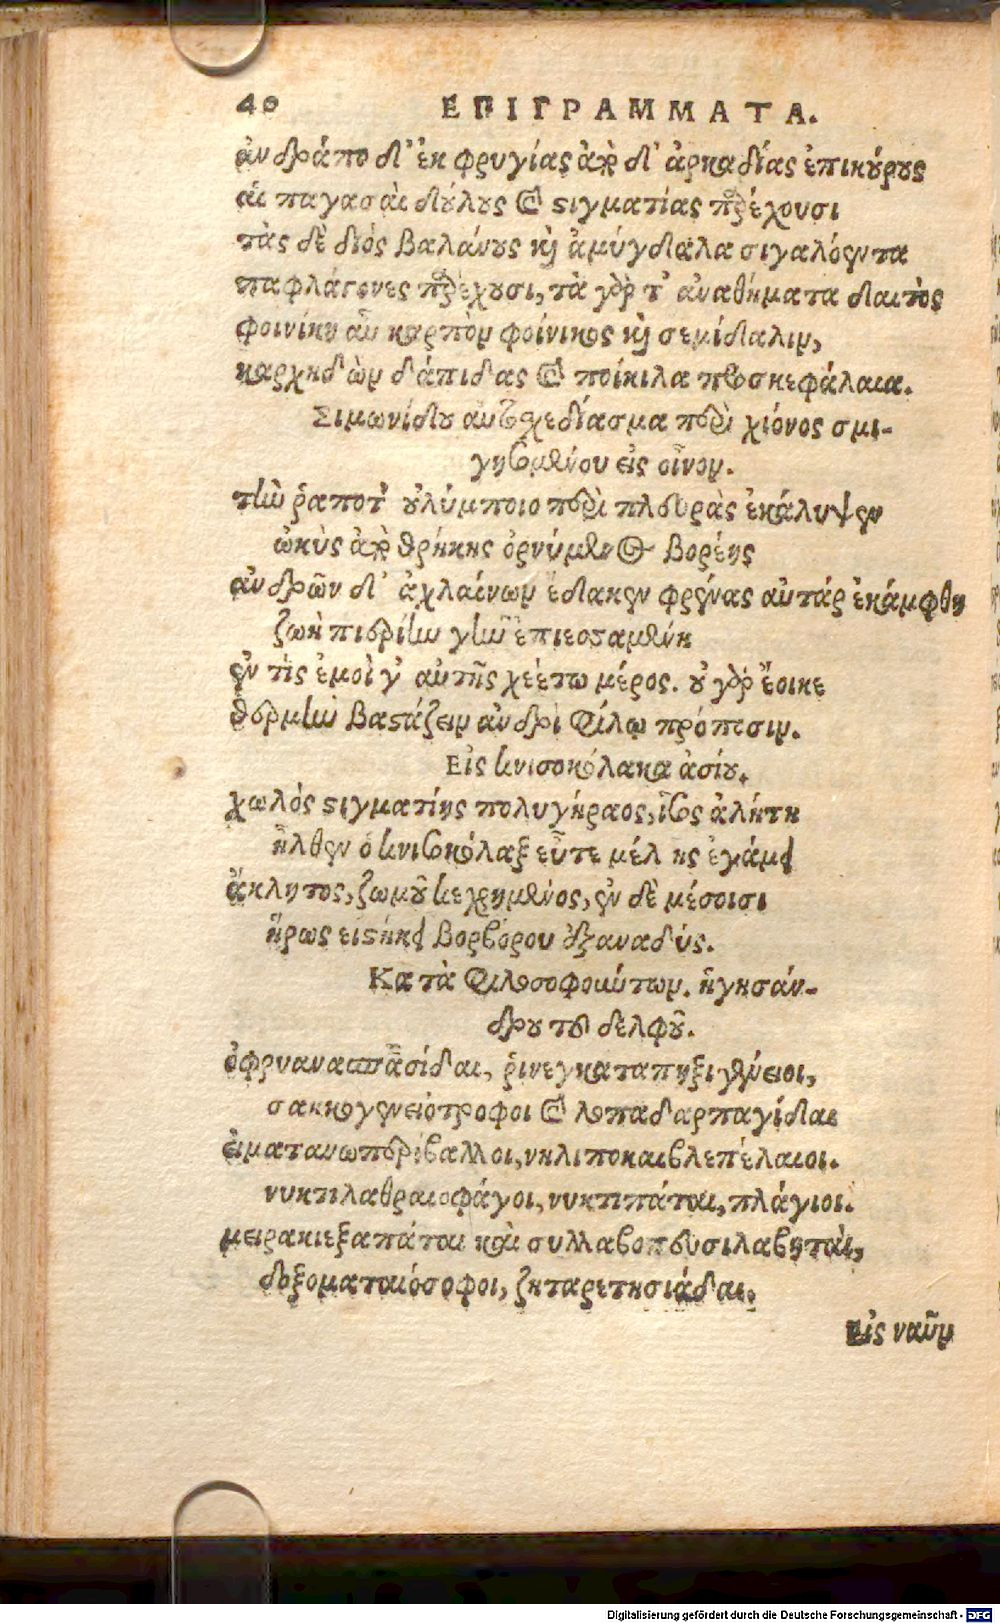 40 ΕΠΙΓΡΑΜΜΑΤΑ.
ἀνδράποδ᾽ ἐκ φρυγίας ἀπὸ δ᾽ ἀρκαδίας ἐπικούρους
αἱ παγασαὶ δούλους καὶ στιγματίας παρέχουσι
τὰς δὲ διὸς βαλάνους καὶ ἀμύγδαλα σιγαλόεντα
παφλάγονες παρέχουσι, τὰ γάρ τ᾽ ἀναθήματα δαιτὸς
φοινίκη αὖ καρπὸν φοίνικος καὶ σεμίδαλιν,
καρχηδὼν δάπιδας καὶ ποίκιλα προσκεφάλαια.
Σιμωνίδου αὐτοσχεδίασμα περὶ χιόνος σμι-
γησομένου εἰς οἶνον.
τὴν ῥά ποτ᾽ οὐλύμποιο περὶ πλευρὰς ἐκάλυψεν
ὠκὺς ἀπὸ θρήκης ὀρνύμενος βορέης
ἀνδρῶν δ᾽ ἀχλαίνων ἔδακεν φρένας αὐτάρ ἐκάμφθη
ζωὴ πιερίην γῆν ἐπιεσσαμένη
ἐν τὶς ἐμοὶ γ᾽ αὐτῆς χεέτω μέρος. οὐ γὰρ ἔοικε
θερμὴν βαστάζειν ἀνδρὶ φίλῳ πρόποσιν.
Εἰς κνισοκόλακα ἀσίου.
χωλὸς στιγματίης πολυγήραος, ἶσος ἀλήτη
ἦλθεν ὁ κνισοκόλαξ εὖτε μέλης ἐγάμει
ἄκλητος, ζωμοῦ κεχρημένος, ἐν δὲ μέσοισι
ἥρως εἱστήκει βορβόρου ἐξαναδύς.
Κατὰ φιλοσοφούντων. ἡγησάν-
δρου τοῦ δελφοῦ.
ὀφρυανασπασίδαι, ῥινεγκαταπηξιγένειοι,
σακκογενειότροφοι καὶ λοπαδαρπαγίδαι
εἱματανωπερίβαλλοι, νηλιποκαιβλεπέλαιοι.
νυκτιλαθραιοφάγοι, νυκτιπάται, πλάγιοι.
μειρακιεξαπάται καὶ συλλαβοπευσιλαβηταὶ,
δοξοματαιόσοφοι, ζηταρετησιάδαι.
εἰς ναῦν
Digitalisierung gefördert durch die Deutsche Forschungsgemeinschaft - DFG